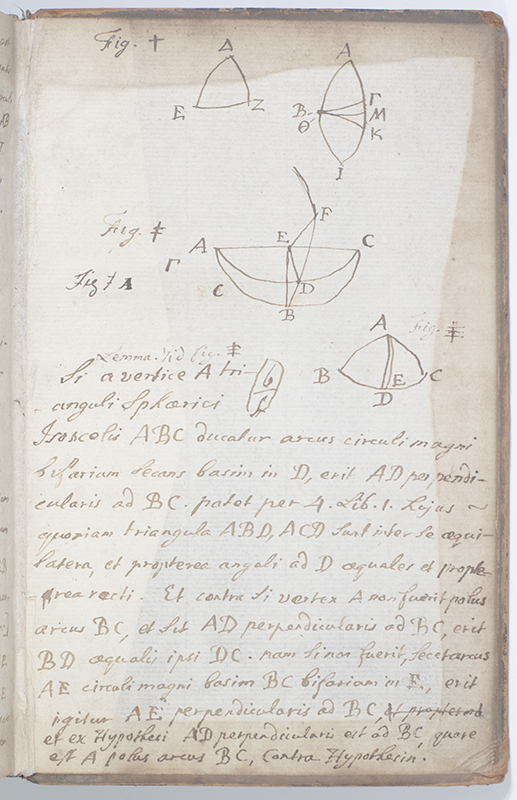 Fig. †
Δ
A
E
Z
B
Γ
M
Θ
K
I
F
Fig. ‡
A
E
C
Γ
Fig †
C
D
B
A
Fig.
B
E
C
D
Lemma. Vid Fig.
Si a vertice A tri-
anguli Sphærici
Isoscelis ABC ducatur arcus circuli magni
bifariam secans basim in D, erit AD perpendi-
cularis ad BC. patet per 4. Lib. 1. hujus ~
quoniam triangula ABD, ACD sunt inter se æqui-
latera, et propterea anguli ad D æquales et propte-
rea recti. Et contra si vertex A non fuerit polus
arcus BC, et sit AD perpendicularis ad BC, erit
BD æqualis ipsi DC. nam si non fuerit, secet arcus
AE circuli magni basim BC bifariam in E, erit
igitur AE perpendicularis ad BC, et propterea
et ex Hypothesi AD perpendicularis est ad BC, quare
est A polus arcus BC, Contra Hypothesin.